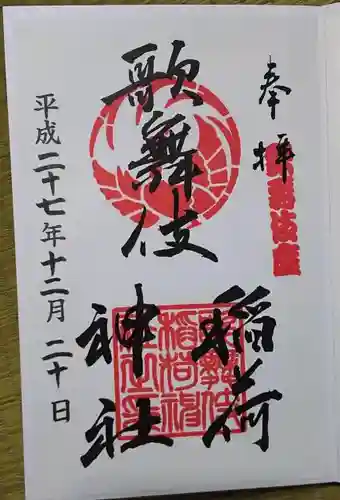 奉拝
歌舞伎座
歌舞伎
稲荷
神社
平成二十七年十二月二十日